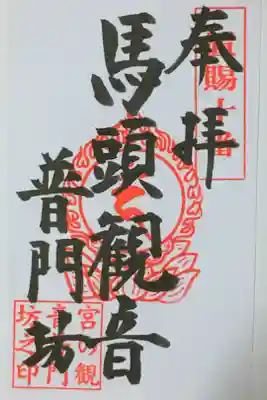 置賜十番
奉拝
馬頭觀音
普門坊
宮の観
音普門
坊之印